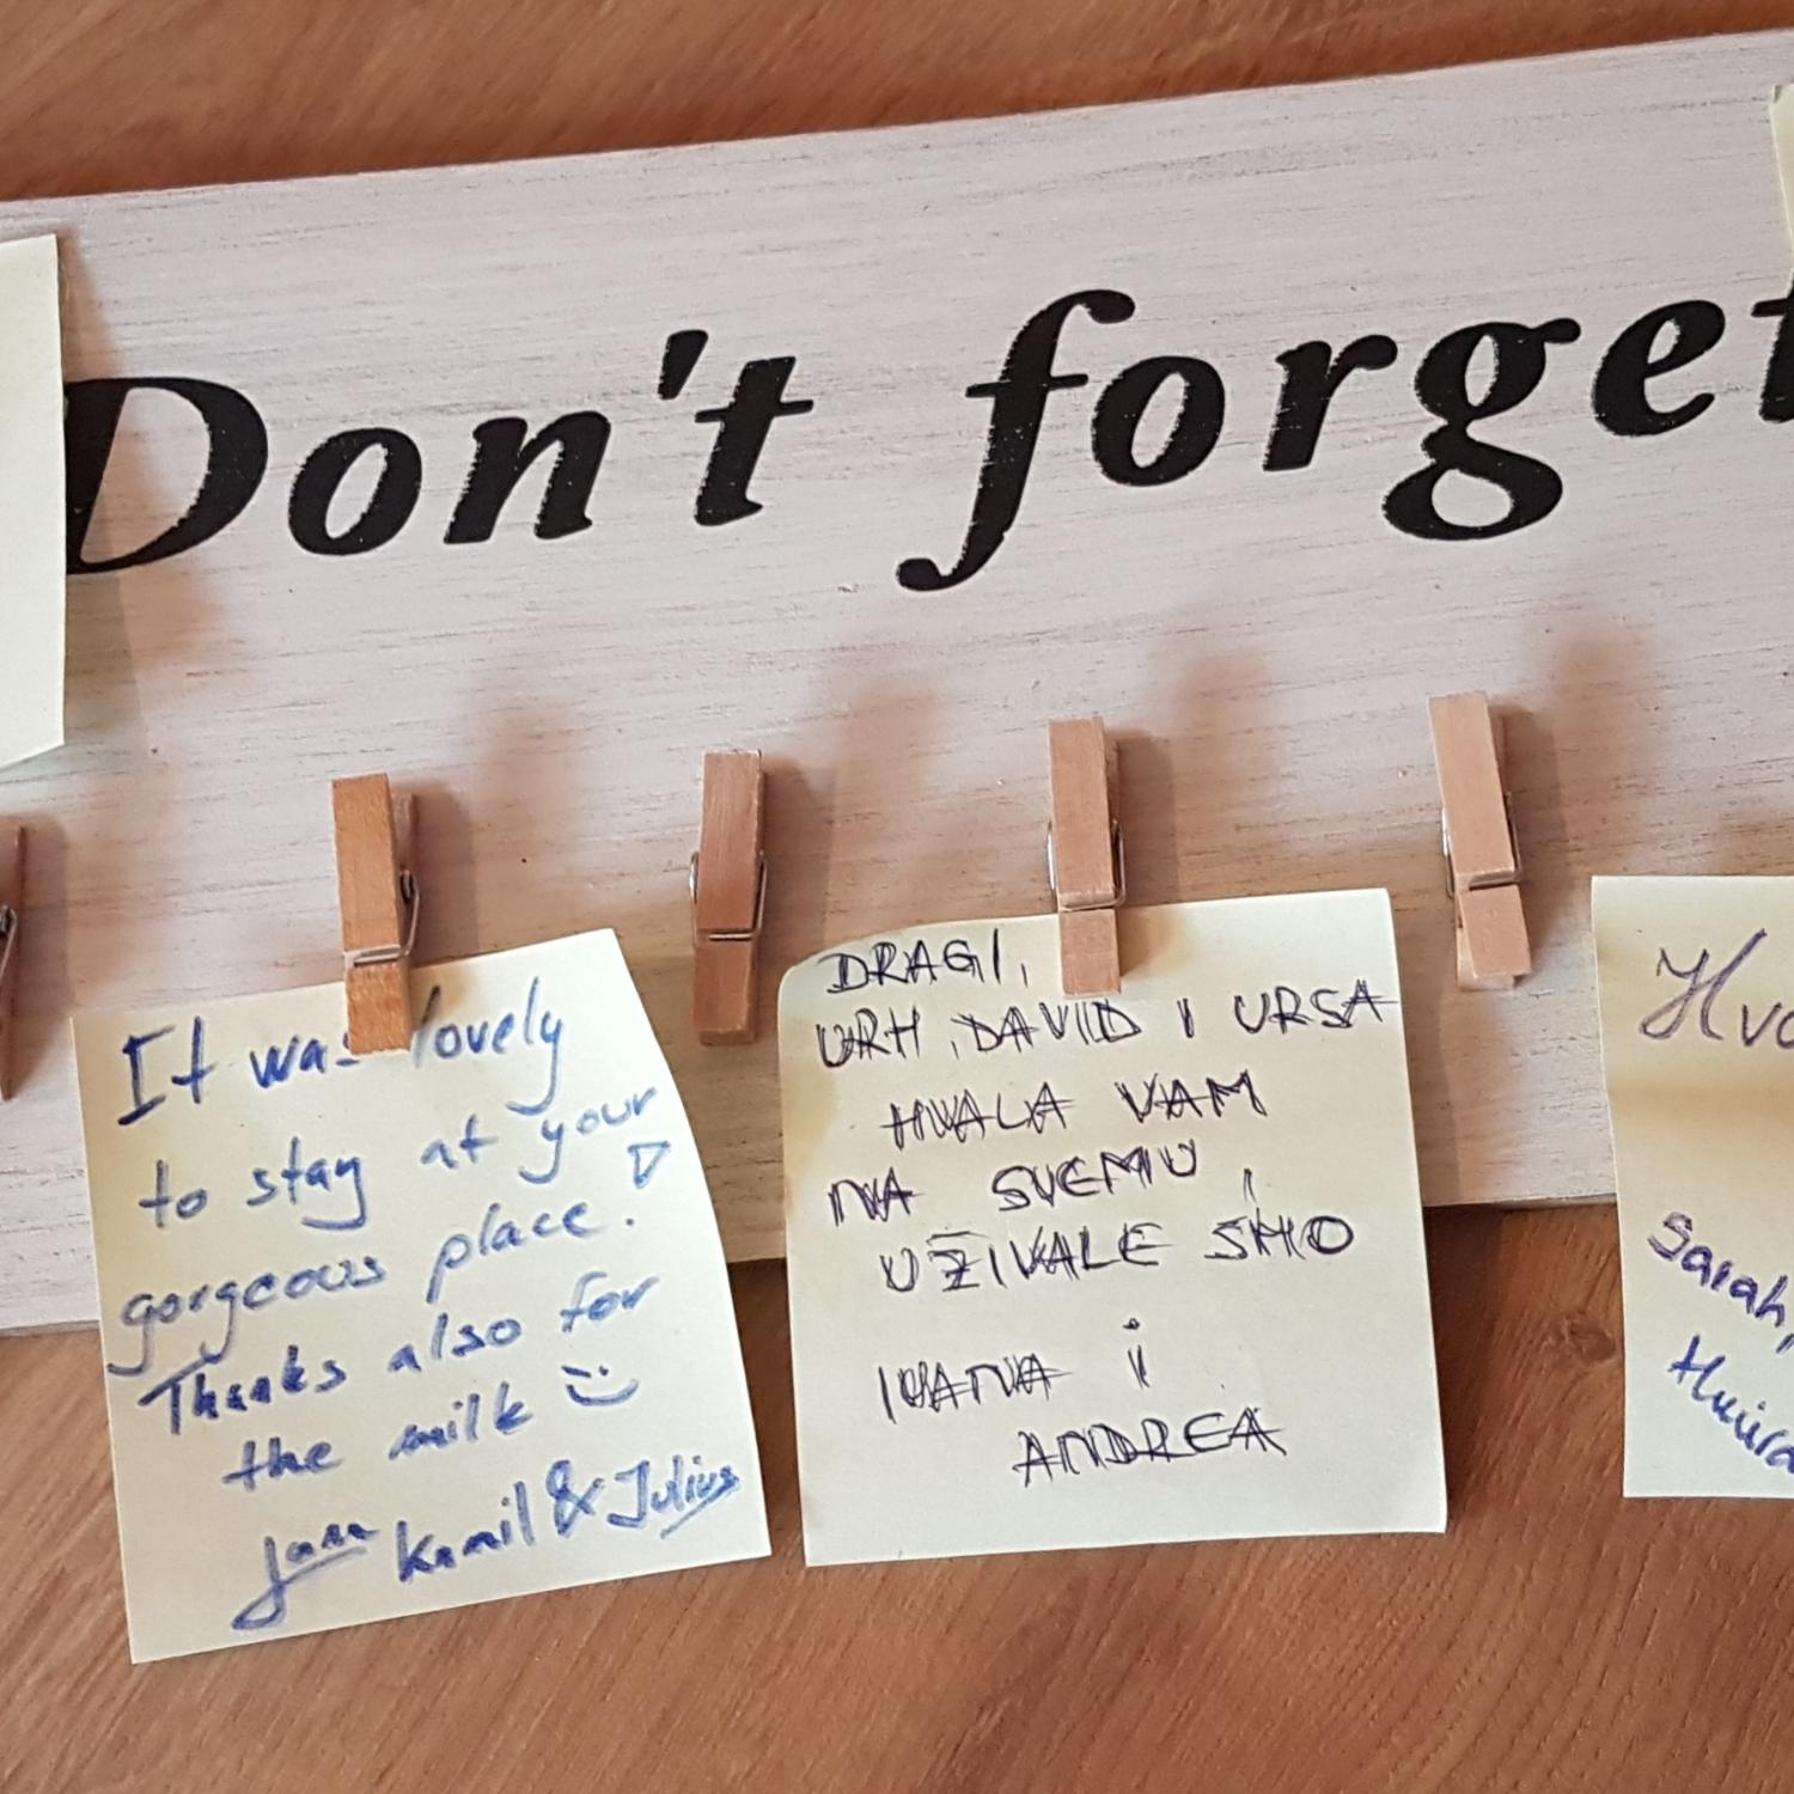 Don't forget
It was lovely
to stay at your
gorgeous place.
Thanks also for
the milk :)
Jana Kamil & Julius
DRAGI,
URH, DAVID I URSA
HVALA VAM
NA SVEMU,
UŽIVALE SMO
IVANA i
ANDREA
Sarah,